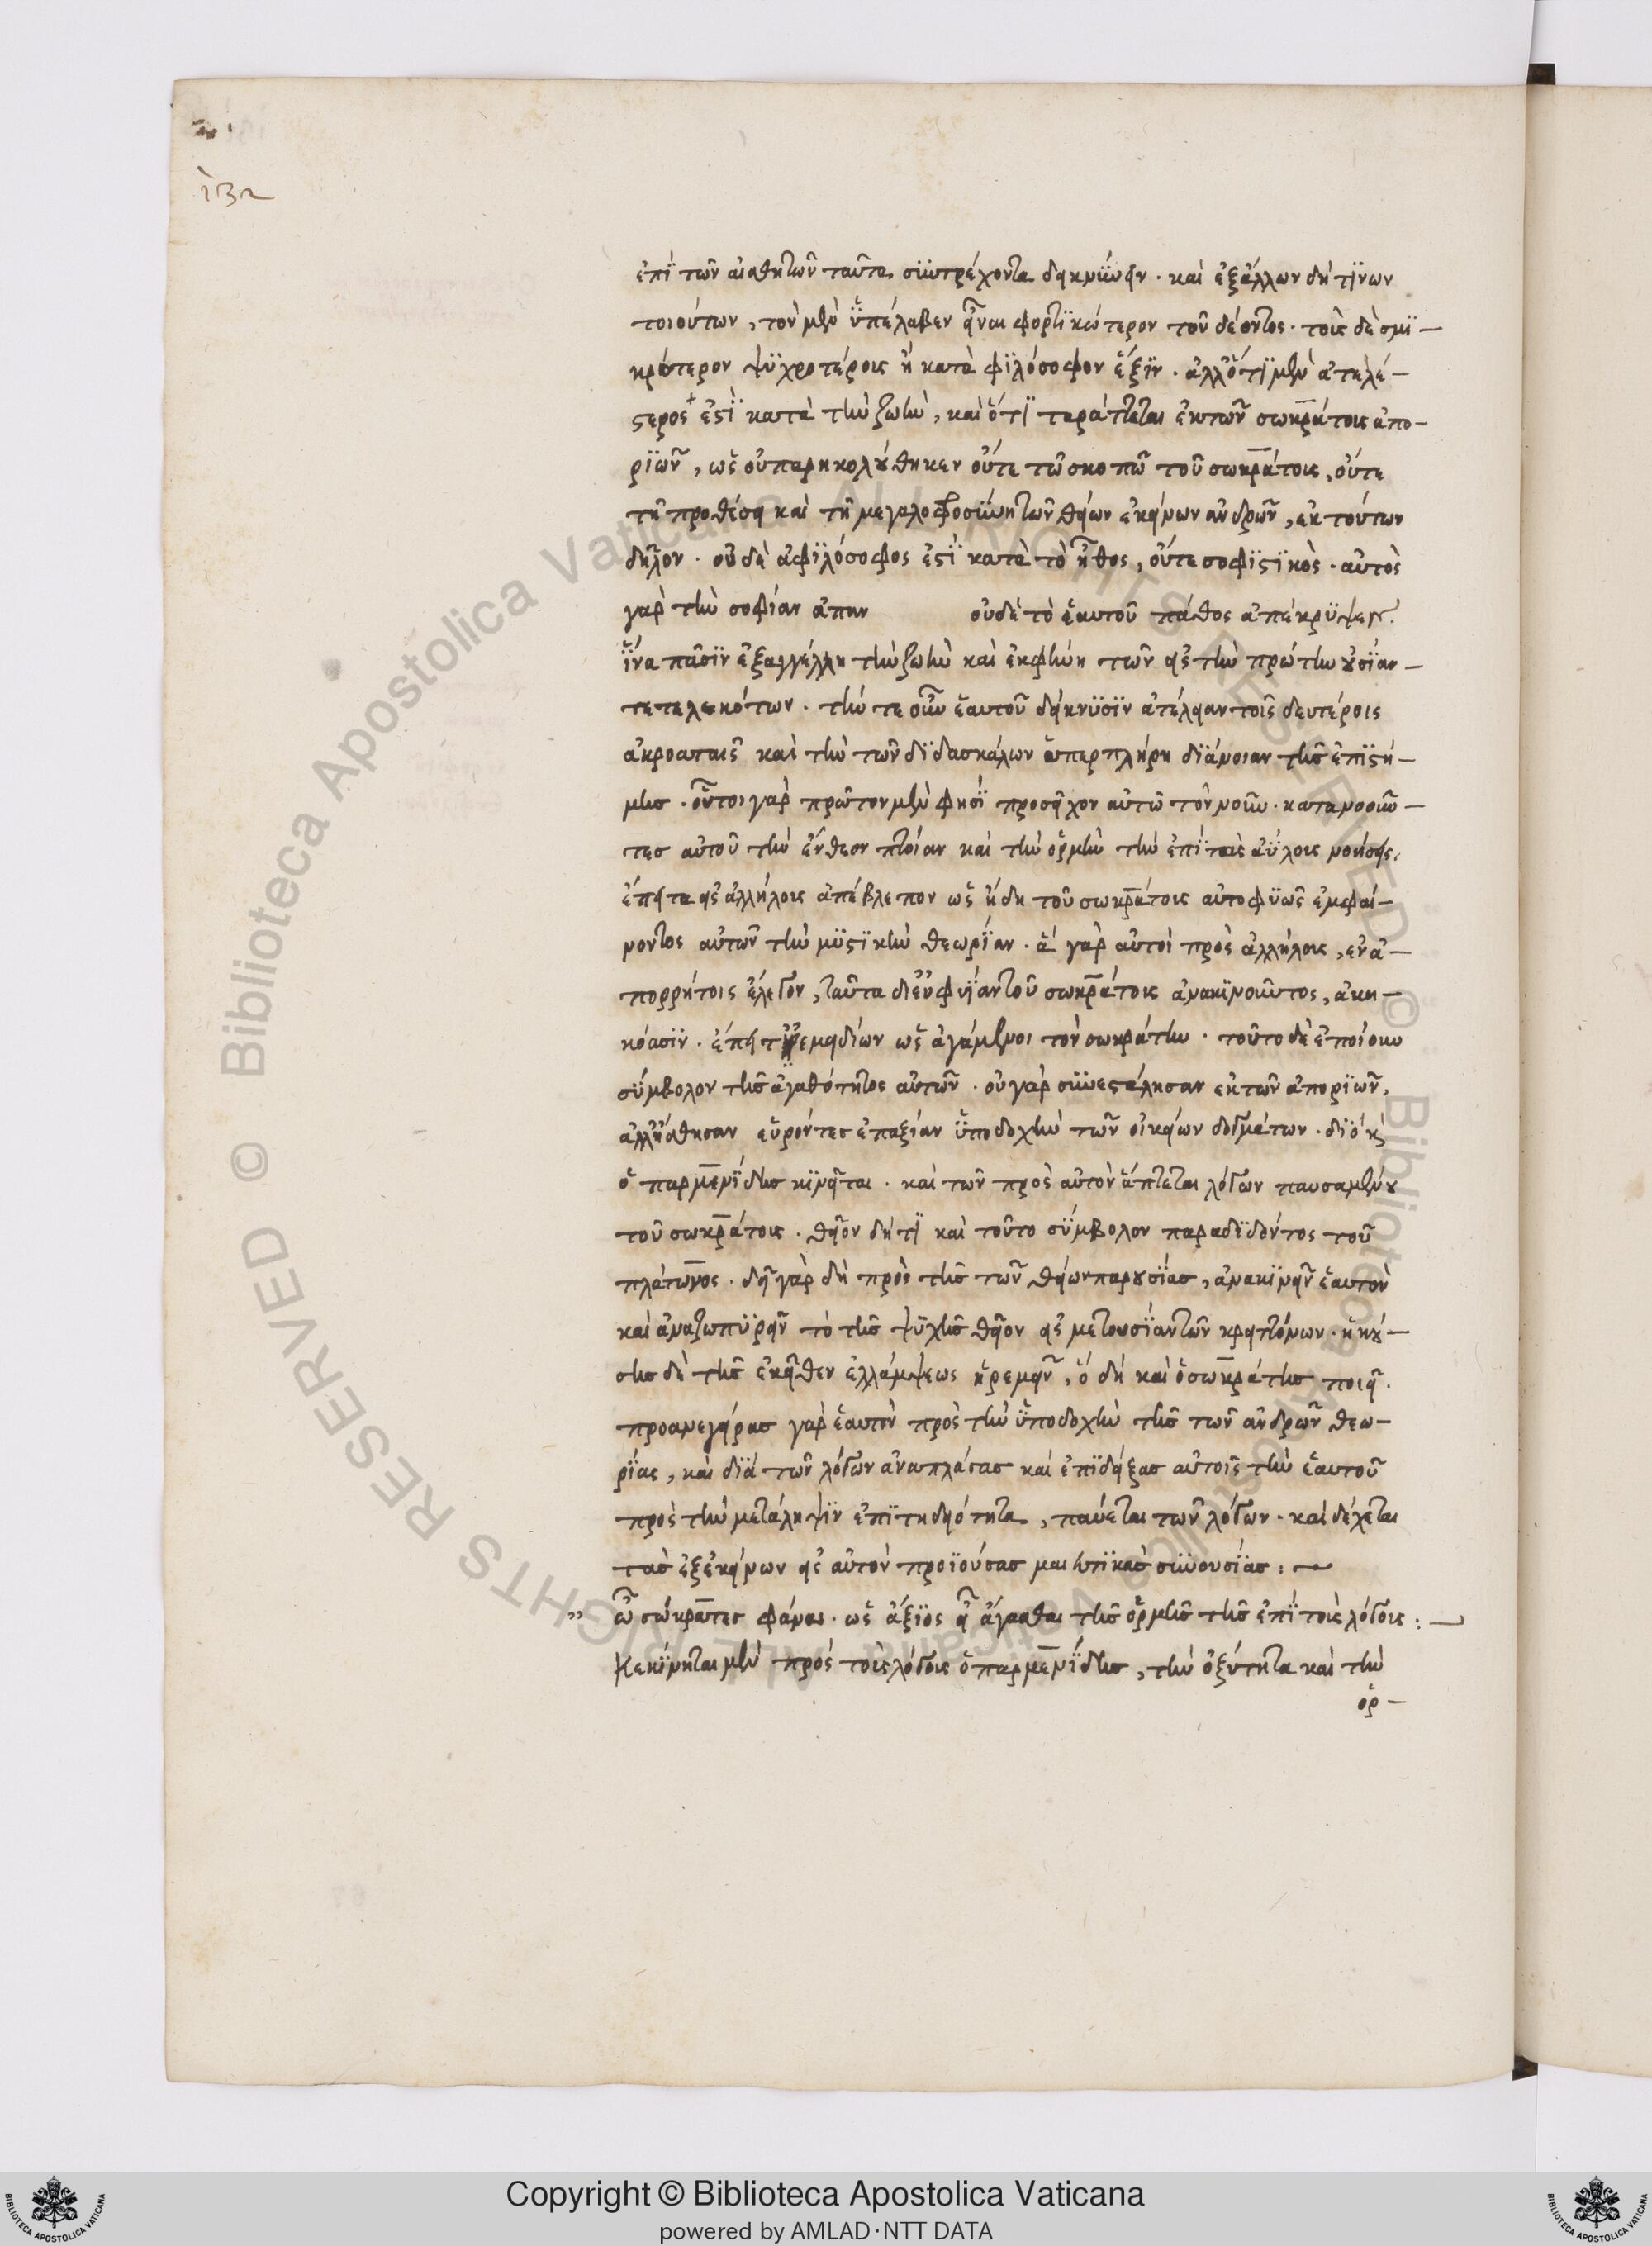 ἐπὶ τῶν αἰσθητῶν ταῦτα συντρέχοντα δεικνύειν. καὶ ἐξ ἄλλων δή τινων
τοιούτων, τὸν μὲν ὑπέλαβεν εἶναι φορτικώτερον τοῦ δέοντος. τοὺς δὲ σμι-
κρότερον ψυχροτέρους ἢ κατὰ φιλόσοφον ἕξιν. ἀλλ' ὅτι μὲν ἀτελέ-
στερος ἐστὶ κατὰ τὴν ζωὴν, καὶ ὅτι ταράττεται ἐκ τῶν σωκράτους ἀπο-
ριῶν, ὡς οὐ παρηκολούθηκεν οὔτε τῶ σκοπῶ τοῦ σωκράτους, οὔτε
τῆ προθέσει καὶ τῆ μεγαλοφροσύνη τῶν θείων ἐκείνων ἀνδρῶν, ἐκ τούτων
δῆλον. οὐδὲ ἀφιλόσοφος ἐστὶ κατὰ τὸ ἦθος, οὔτε σοφιστικὸς. αὐτὸς
γὰρ τὴν σοφίαν ἀπην οὐδὲ τὸ ἑαυτοῦ πάθος ἀπέκρυψεν.
ἵνα πᾶσιν ἐξαγγέλλη τὴν ζωὴν καὶ ἐκφήνη τῶν εἰς τὴν πρώτην οὐσίαν
τετελεκότων. τήν τε οὖν ἑαυτοῦ δείκνυσιν ἀτέλειαν τοῖς δευτέροις
ἀκροαταῖς καὶ τὴν τῶν διδασκάλων ὑπερπλήρη διάνοιαν τῆς ἐπιστή-
μης. οὗτοι γὰρ πρῶτον μὲν φησὶ προσεῖχον αὐτῶ τὸν νοῦν. κατανοοῦν-
τες αὐτοῦ τὴν ἔνθεον πτοίαν καὶ τὴν ὁρμὴν τὴν ἐπὶ τὰς ἀύλους νοήσεις,
ἔπειτα εἰς ἀλλήλους ἀπέβλεπον ὡς ἤδη τοῦ σωκράτους αὐτοφυῶς ἐμφαί-
νοντος αὐτῶν τὴν μυστικὴν θεωρίαν. ἃ γὰρ αὐτοὶ πρὸς ἀλλήλους, ἐν ἀ-
πορρήτοις ἔλεγον, ταῦτα δι' εὐφυΐαν τοῦ σωκράτους ἀνακινοῦντος, ἀκη-
κόασιν. ἔπειτ' ἐμειδίων ὡς ἀγάμενοι τὸν σωκράτην. τοῦτο δὲ ἐποίουν
σύμβολον τῆς ἀγαθότητος αὐτῶν. οὐ γὰρ συνεστάλησαν ἐκ τῶν ἀποριῶν,
ἀλλ' ἥσθησαν εὑρόντες ἐπαξίαν ὑποδοχὴν τῶν οἰκείων δογμάτων. διὸ κ
ὁ παρμενίδης κινεῖται. καὶ τῶν πρὸς αὐτὸν ἅπτεται λόγων παυσαμένου
τοῦ σωκράτους. θεῖον δή τι καὶ τοῦτο σύμβολον παραδιδόντος τοῦ
πλάτωνος. δεῖ γὰρ δὴ πρὸς τὰς τῶν θείων παρουσίας, ἀνακινεῖν ἑαυτὸν
καὶ ἀναζωπυρεῖν τὸ τῆς ψυχῆς θεῖον εἰς μετουσίαν τῶν κρειττόνων. ἡκού-
σης δὲ τῆς ἐκεῖθεν ἐλλάμψεως ἠρεμεῖν, ὃ δὴ καὶ ὁ σωκράτης ποιεῖ.
προανεγείρας γὰρ ἑαυτὸν πρὸς τὴν ὑποδοχὴν τῆς τῶν ἀνδρῶν θεω-
ρίας, καὶ διὰ τῶν λόγων ἀναπλάσας καὶ ἐπιδείξας αὐτοῖς τὴν ἑαυτοῦ
πρὸς τὴν μετάληψιν ἐπιτηδειότητα, παύεται τῶν λόγων. καὶ δέχεται
τὰς ἐξ ἐκείνων εἰς αὐτὸν προϊούσας μαιευτικὰς συνουσίας:
ὦ σώκρατες φάναι. ὡς ἄξιος εἶ ἄγασθαι τῆς ὁρμῆς τῆς ἐπὶ τοὺς λόγους:
Κεκίνηται μὲν πρὸς τοὺς λόγους ὁ παρμενίδης, τὴν ὀξύτητα καὶ τὴν
ὁρ-